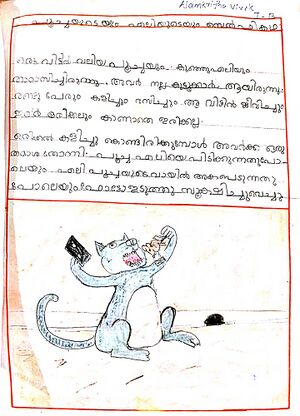 Alamkritha Vivek
7-B
പൂച്ചയുടെയും എലിയുടെയും സെൽഫികഥ
ഒരു വീട്ടിൽ വലിയ പൂച്ചയും കുഞ്ഞെലിയും
താമസിച്ചിരുന്നു. അവർ നല്ല കൂട്ടുകാർ ആയിരുന്നു.
രണ്ടു പേരും കളിച്ചും രസിച്ചും ആ വീട്ടിൽ ജീവിച്ചു.
ഒരിക്കലും കാണാതെ ഇരിക്കല്ല.
ഒരിക്കൽ കളിച്ചു കൊണ്ടിരിക്കുമ്പോൾ അവർക്ക് ഒരു
തമാശ തോന്നി. പൂച്ച എലിയെ പിടിക്കുന്നതുപോ
ലെയും എലി പൂച്ചയുടെ വായിൽ അകപ്പെടുന്നതു
പോലെയും ഫോട്ടോ എടുത്തു സൂക്ഷിച്ചുവെച്ചു